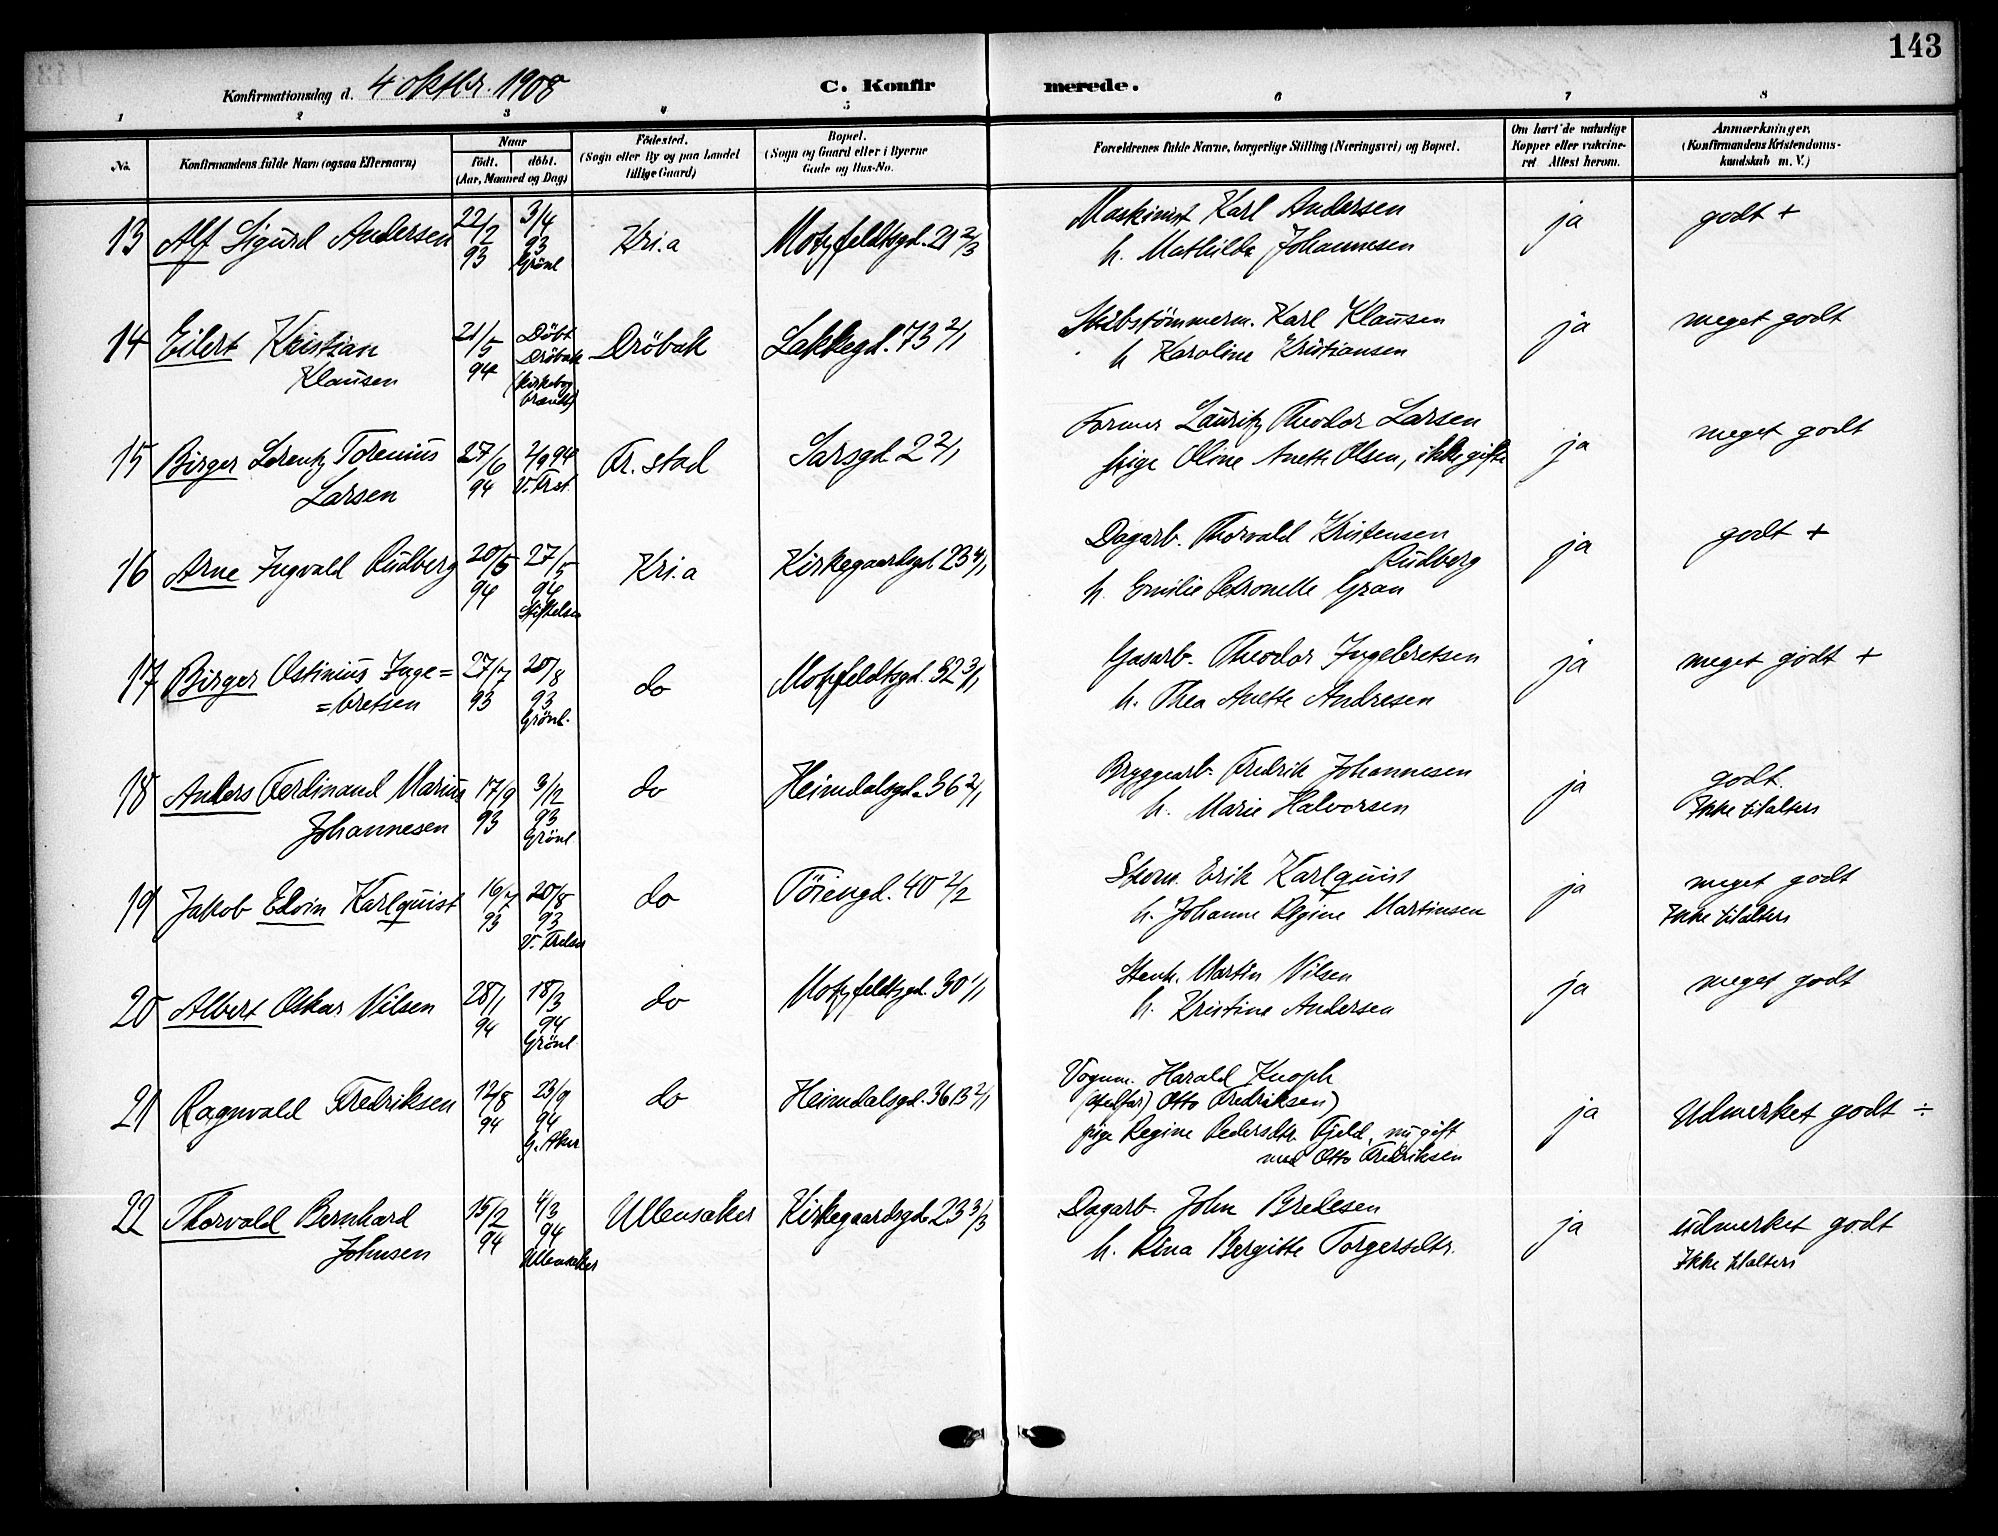 143
Konfirmationsdag d. 4 oktbr. 1908
C. Konfirmerede.
1 2 3 4 5 6 7 8
No.
Konfirmandens fulde Navn (ogsaa Efternavn)
Naar
födt. döbt.
(Aar, Maaned og Dag)
Födested.
(Sogn eller By og paa Landet
tillige Gaard)
Bopæl.
(Sogn og Gaard eller i Byerne
Gade og Hus-No.
Forældrenes fulde Navne, borgerlige Stilling (Næringsvei) og Bopæl.
Om havt de naturlige
Kopper eller vakcine-
ret Attest herom.
Anmærkninger.
(Konfirmandens Kristendoms-
kundskab m. V.)
13 Alf Sigurd Andersen 22/2 93 3/4 93 Grönl Kri.a Motzfeldtsgd. 21 2/3
Maskinist Karl Andersen
h. Mathilde Johannesen
ja godt +
14 Eilert Kristian
Klausen
21/5 94 Döbt Dröbak (Kirkebog brændt) Dröbak Lakkegd. 73 2/1
Skibstömmerm. Karl Klausen
h Karoline Kristiansen
ja meget godt
15 Birger Lorentz Torenius
Larsen
27/6 94 2/9 94 V. Frst. Fr. stad Sarsgd 2 2/1
Former Lauritz Theodor Larsen
pige Oline Anette Olsen, ikke gifte
ja meget godt
16 Arne Ingvald Rudberg 20/5 94 27/5 94 Stiftelsen Kri.a Kirkegaardsgd. 23 4/1
Dagarb. Thorvald Kristensen
Rudberg
h. Emilie Petronelle Gran
ja godt +
17 Birger Ostinius Inge=
=bretsen
27/7 93 20/8 93 Grönl. do Motzfeldtsgd. 32 3/1
Gasarb. Theodor Ingebretsen
h. Thea Anette Andresen
ja meget godt +
18 Anders Ferdinand Marius
Johannesen
17/9 93 3/12 93 Grönl do Heimdalsgd. 36 2/1
Bryggearb. Fredrik Johannesen
h. Marie Halvorsen
ja godt.
Ikke tilalters
19 Jakob Edvin Karlquist 16/7 93 20/8 93 V. Frelser do Töiengd. 40 2/2
Erik Karlquist
h. Johanne Regine Martinsen
ja meget godt
Ikke tilalters
20 Albert Oskar Nilsen 28/1 94 18/3 94 Grönl do Motzfeldtsgd. 30 1/1
Stenh. Martin Nilsen
h. Kristine Andersen
ja meget godt
21 Ragnvald Fredriksen 12/8 94 23/9 94 G. Aker do Heimdalsgd. 36 B 2/1
Vognm. Harald Knoph
(stedfar) Otto Fredriksen)
pige Regine Pedersdtr. Fjeld, nu gift
med Otto Fredriksen
ja Udmerket godt ÷
22 Thorvald Bernhard
Johnsen
15/2 94 4/3 94 Ullensaker Ullensaker Kirkegaardsgd. 23 3/3
Dagarb. John Bredesen
h. Lina Bergitte Torgersdtr.
ja udmerket godt
Ikke tilalters